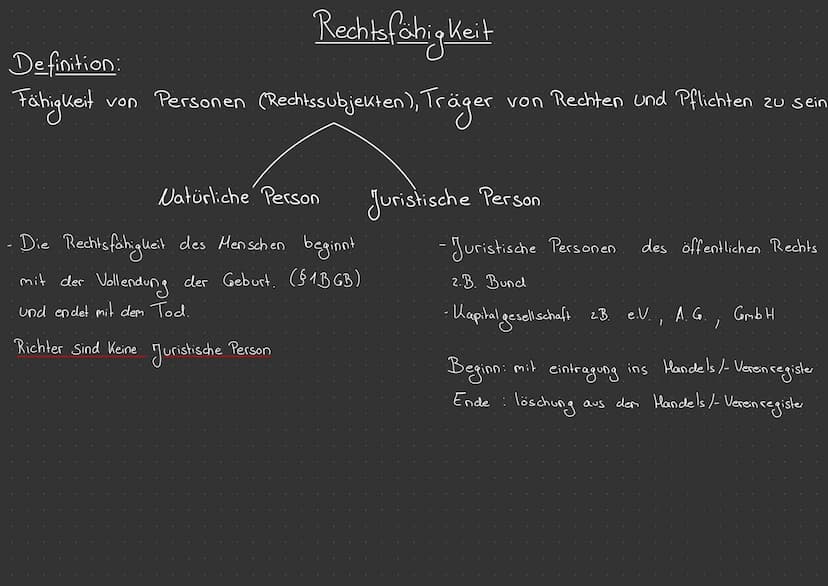 Rechtsfähigkeit
Definition:
Fähigkeit von Personen (Rechtssubjekten), Träger von Rechten und Pflichten zu sein
Natürliche Person
Juristische Person
- Die Rechtsfähigkeit des Menschen beginnt
mit der Vollendung der Geburt. (§1BGB)
und endet mit dem Tod.
Richter sind Keine Juristische Person
- Juristische Personen des öffentlichen Rechts
z.B. Bund
- Kapitalgesellschaft z.B. e.V., A.G., GmbH
Beginn: mit eintragung ins Handels/-Vereinregister
Ende : löschung aus dem Handels/-Vereinregister